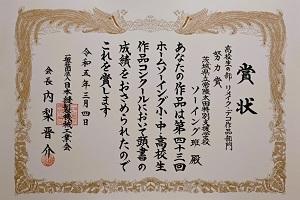 賞状
高校生の部 リメイク・デコ作品部門
努力賞
茨城県立常陸太田特別支援学校
ソーイング班 殿
あなたの作品は第四十三回
ホームソーイング小・中・高校生
作品コンクールにおいて頭書の
成績をおさめられたので
これを賞します
令和五年三月四日
一般社団法人日本縫製機械工業会
会長 内梨晋介